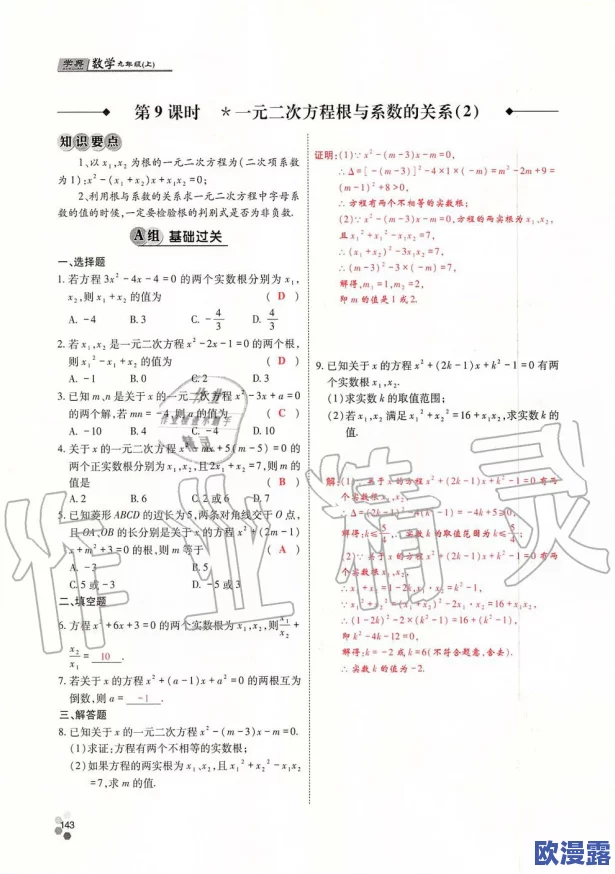 学典 数学 九年级(上)
第9课时 *一元二次方程根与系数的关系(2)
知识要点
1、以x₁,x₂为根的一元二次方程为(二次项系数
为1):x²-(x₁+x₂)x+x₁x₂=0;
2、利用根与系数的关系求一元二次方程中字母系
数的值的时候,一定要检验根的判别式是否为非负数.
A组 基础过关
一、选择题
1.若方程3x²-4x-4=0的两个实数根分别为x₁,
x₂,则x₁+x₂的值为 ( D )
A. -4 B. 3 C. -4/3 D. 4/3
2.若x₁,x₂是一元二次方程x²-2x-1=0的两个根,
则x₁²-x₁+x₂的值为 ( D )
A. -1 B. 0 C. 2 D. 3
3.已知m、n是关于x的一元二次方程x²-3x+a=0
的两个解,若mn=-4,则a的值为 ( C )
A. -10 B. 4 C. -4 D. 10
4.关于x的一元二次方程x²-mx+5(m-5)=0的
两个正实数根分别为x₁,x₂,且2x₁+x₂=7,则m的
值是 ( B )
A. 2 B. 6 C. 2或6 D. 7
5.已知菱形ABCD的边长为5,两条对角线交于O点,
且OA、OB的长分别是关于x的方程x²+(2m-1)
x+m²+3=0的根,则m等于 ( A )
A. -3 B. 5
C. 5或-3 D. -5或3
二、填空题
6.方程x²+6x+3=0的两个实数根为x₁,x₂,则x₂/x₁+
x₁/x₂= 10 .
7.若关于x的方程x²+(a-1)x+a²=0的两根互为
倒数,则a= -1 .
三、解答题
8.已知关于x的一元二次方程x²-(m-3)x-m=0.
(1)求证:方程有两个不相等的实数根;
(2)如果方程的两实根为x₁、x₂,且x₁²+x₂²-x₁x₂
=7,求m的值.
143
证明:(1)∵x²-(m-3)x-m=0,
∴Δ=[-(m-3)]²-4×1×(-m)=m²-2m+9=
(m-1)²+8>0,
∴方程有两个不相等的实数根;
(2)∵x²-(m-3)x-m=0,方程的两实根为x₁、x₂,
且x₁²+x₂²-x₁x₂=7,
∴(x₁+x₂)²-3x₁x₂=7,
∴(m-3)²-3×(-m)=7,
解得,m₁=1,m₂=2,
即m的值是1或2.
9.已知关于x的方程x²+(2k-1)x+k²-1=0有两
个实数根x₁,x₂.
(1)求实数k的取值范围;
(2)若x₁,x₂满足x₁²+x₂²=16+x₁x₂,求实数k的
值.
解:(1)∵关于x的方程x²+(2k-1)x+k²-1=0有两
个实数根x₁,x₂,
∴Δ=(2k-1)²-4(k²-1)=-4k+5≥0,
解得:k≤5/4,∴实数k的取值范围为k≤5/4;
(2)∵关于x的方程x²+(2k-1)x+k²-1=0有两
个实数根x₁,x₂,
∴x₁+x₂=1-2k,x₁·x₂=k²-1,
∵x₁²+x₂²=(x₁+x₂)²-2x₁·x₂=16+x₁x₂,
∴(1-2k)²-2×(k²-1)=16+(k²-1),
即k²-4k-12=0,
解得:k=-2或k=6(不符合题意,舍去).
∴实数k的值为-2.
作业精灵
欧漫露